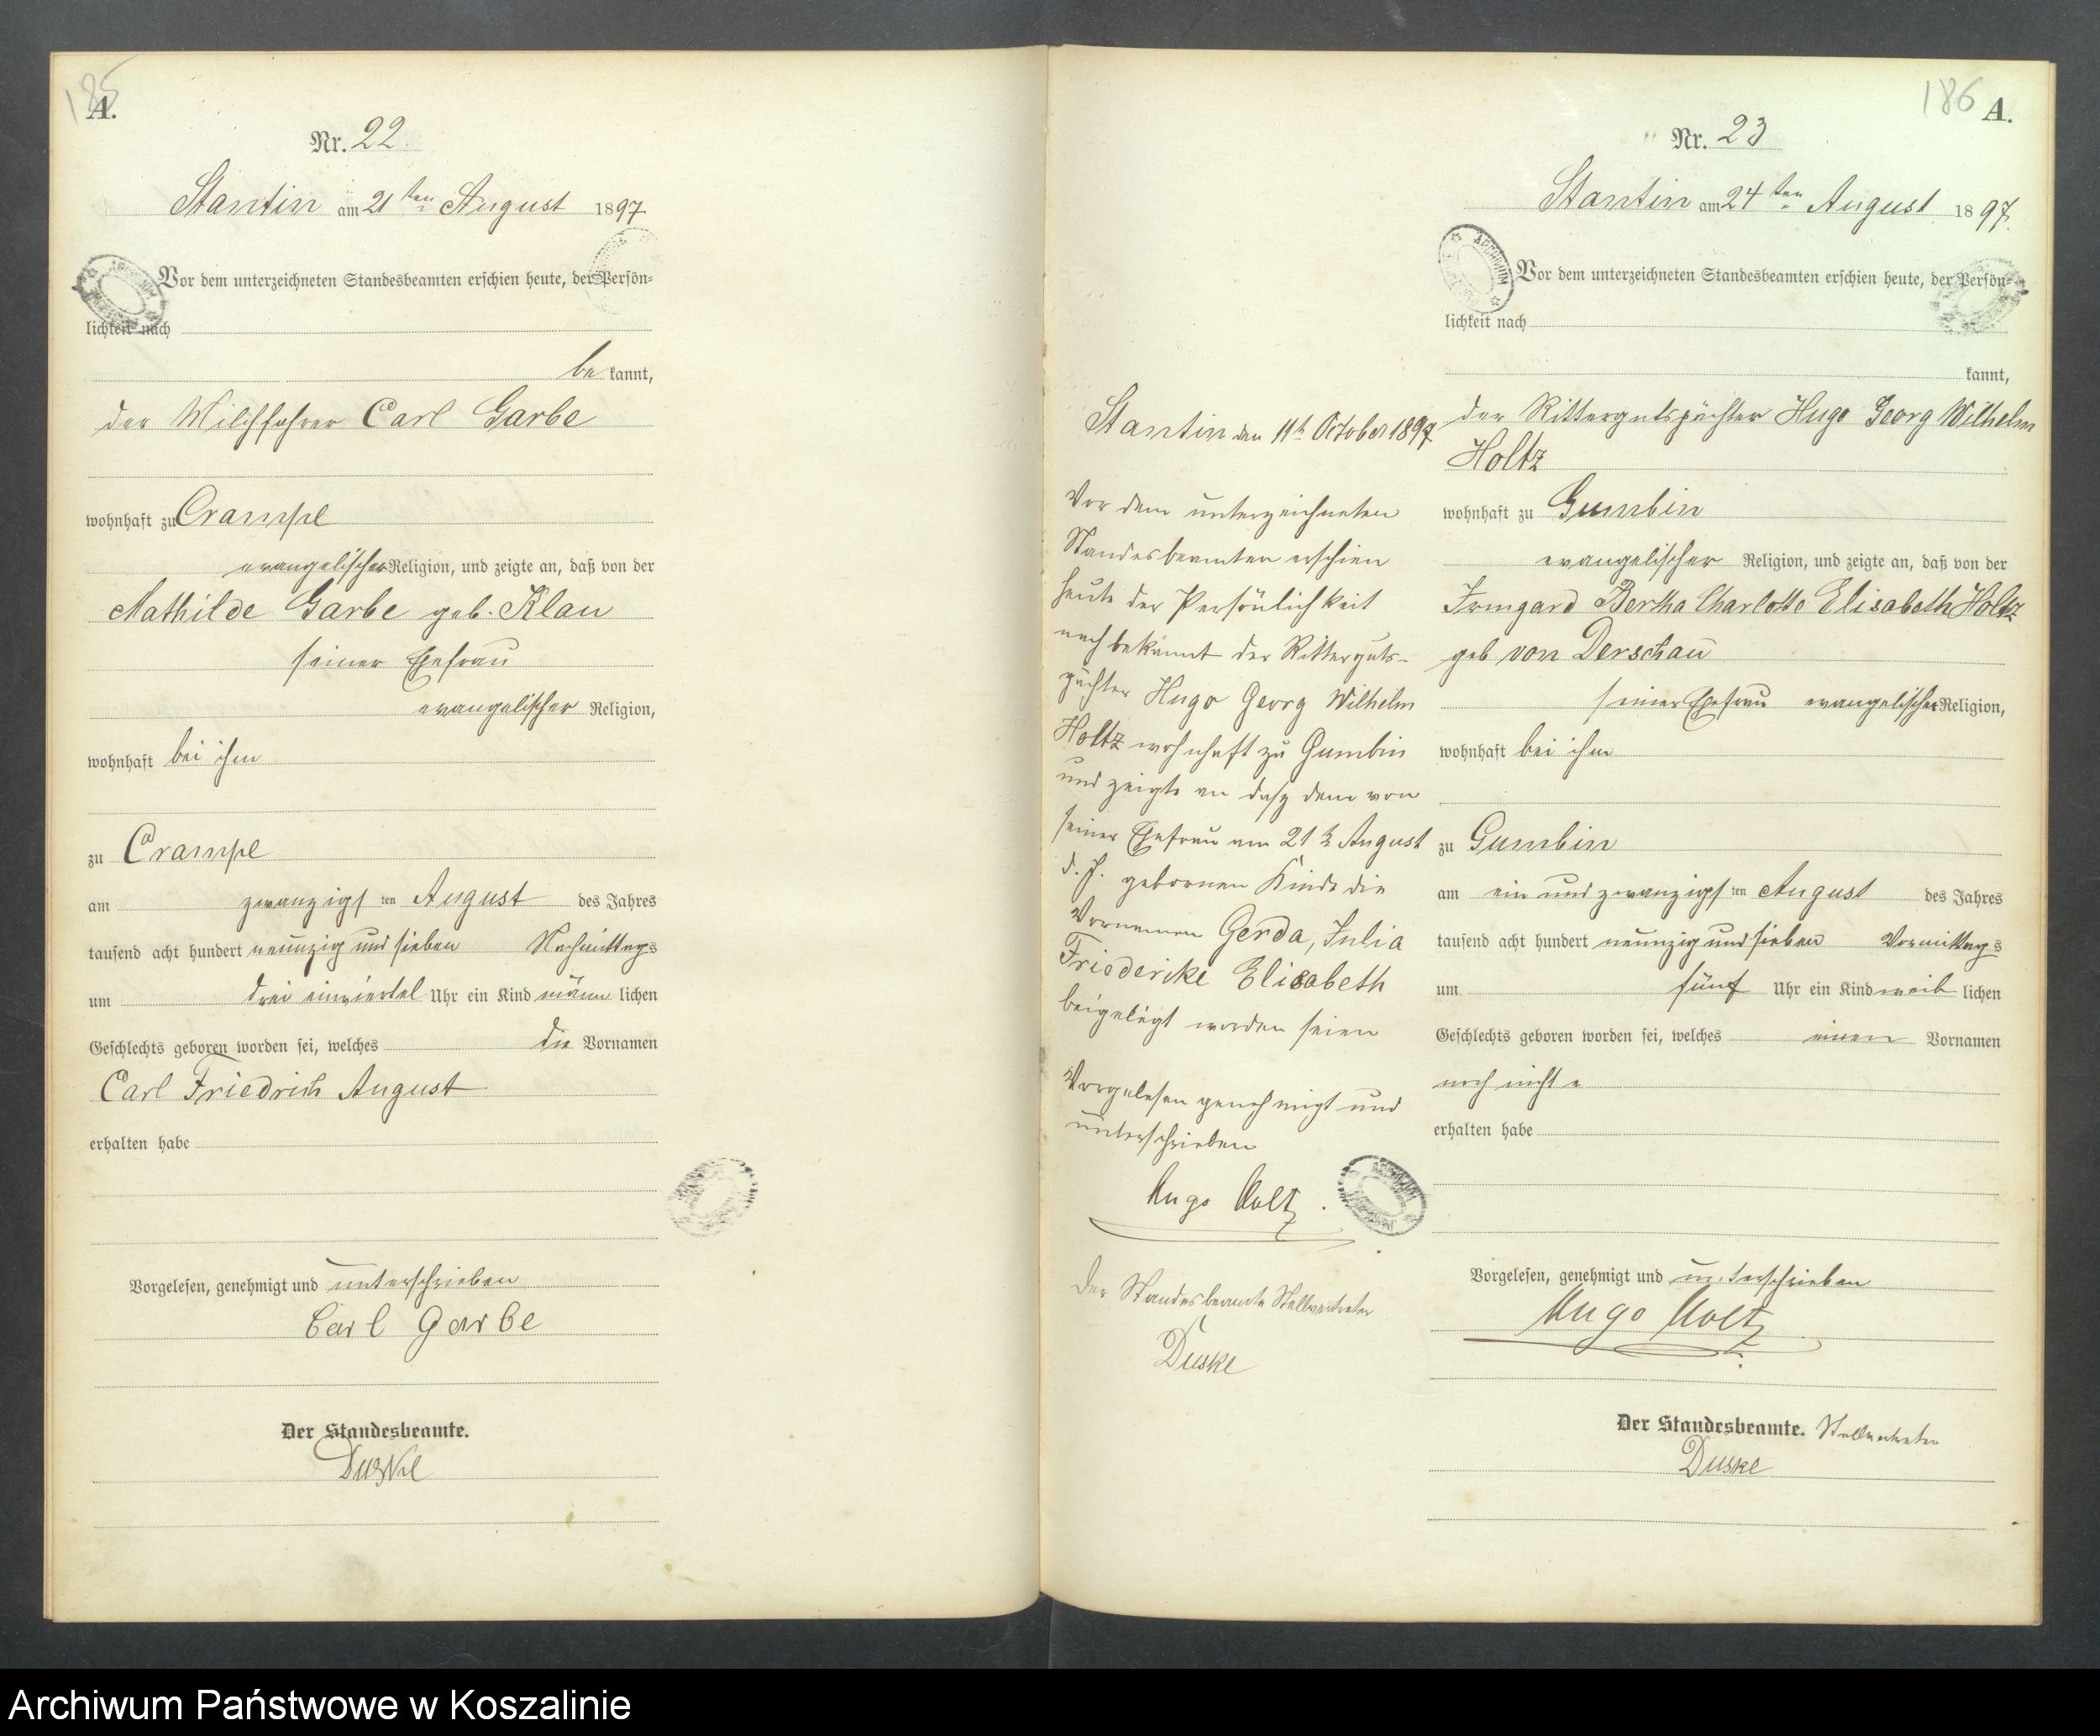 185
A.
Nr. 22.
Stantin am 21ten August 1897
Vor dem unterzeichneten Standesbeamten erschien heute, der Persön-
lichkeit nach
be kannt,
der Milchfahrer Carl Garbe
wohnhaft zu Crampe
evangelischer Religion, und zeigte an, daß von der
Mathilde Garbe geb. Klau
seiner Ehefrau
evangelischer Religion,
wohnhaft bei ihm
zu Crampe
am zwanzigsten August des Jahres
tausend acht hundert neunzig und sieben Nachmittags
um drei einviertel Uhr ein Kind männlichen
Geschlechts geboren worden sei, welches die Vornamen
Carl Friedrich August
erhalten habe
Vorgelesen, genehmigt und unterschrieben
Carl Garbe
Der Standesbeamte.
Duske
Stantin den 11t October 1897
Vor dem unterzeichneten
Standesbeamten erschien
heute der Persönlichkeit
nach bekannt der Ritterguts-
pächter Hugo Georg Wilhelm
Holtz wohnhaft zu Gumbin
und zeigte an daß dem von
seiner Ehefrau am 21t August
d. J. gebornen Kinde die
Vornamen Gerda, Julia
Friedericke Elisabeth
beigelegt worden seien
Vorgelesen genehmigt und
unterschrieben
Hugo Holtz.
Der Standesbeamte Stellvertreter
Duske
186
A.
Nr. 23
Stantin am 24ten August 1897.
Vor dem unterzeichneten Standesbeamten erschien heute, der Persön-
lichkeit nach
kannt,
der Rittergutspächter Hugo Georg Wilhelm
Holtz
wohnhaft zu Gumbin
evangelischer Religion, und zeigte an, daß von der
Irmgard Bertha Charlotte Elisabeth Holtz
geb von Derschau
seiner Ehefrau evangelischer Religion,
wohnhaft bei ihm
zu Gumbin
am ein und zwanzigsten August des Jahres
tausend acht hundert neunzig und sieben Vormittags
um fünf Uhr ein Kind weiblichen
Geschlechts geboren worden sei, welches einen Vornamen
noch nicht
erhalten habe
Vorgelesen, genehmigt und unterschrieben
Hugo Holtz
Der Standesbeamte. Stellvertreter
Duske
Archiwum Państwowe w Koszalinie